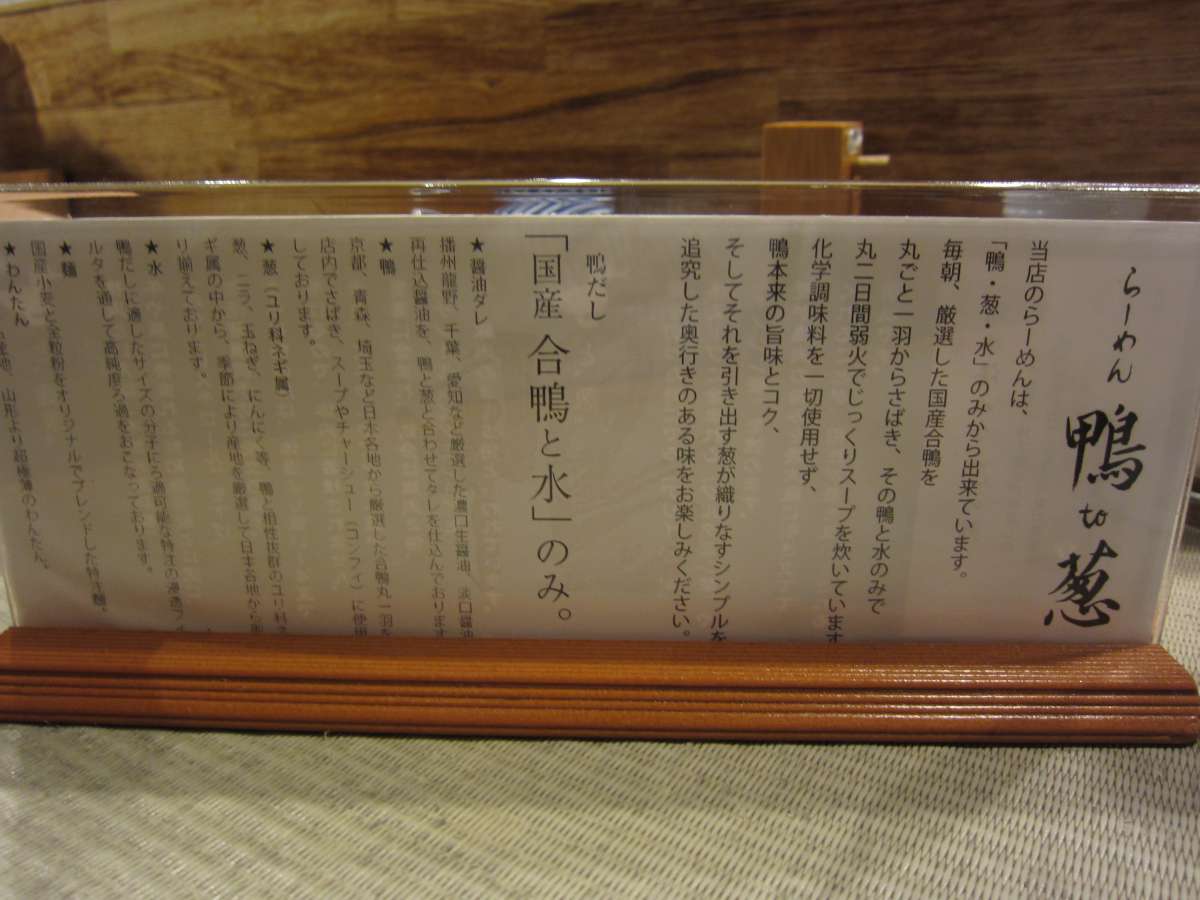 らーめん 鴨 to 葱
当店のらーめんは、
「鴨・葱・水」のみから出来ています。
毎朝、厳選した国産合鴨を
丸ごと一羽からさばき、その鴨と水のみで
丸二日間弱火でじっくりスープを炊いています
化学調味料を一切使用せず、
鴨本来の旨味とコク、
そしてそれを引き出す葱が織りなすシンプルを
追究した奥行きのある味をお楽しみください。
鴨だし
「国産 合鴨と水」のみ。
★醤油ダレ
播州龍野、千葉、愛知など厳選した濃口生醤油、淡口醤油
再仕込醤油を、鴨と葱と合わせてタレを仕込んでおります
★鴨
京都、青森、埼玉など日本各地から厳選した合鴨丸一羽を
店内でさばき、スープやチャーシュー（コンフィ）に使用
しております。
★葱（ユリ科ネギ属）
葱、ニラ、玉ねぎ、にんにく等、鴨と相性抜群のユリ科ネ
ギ属の中から、季節により産地を厳選して日本各地から
り揃えております。
★水
鴨だしに適したサイズの分子にろ過可能な特注の浸透フィ
ルタを通して高純度ろ過をおこなっております。
★麺
国産小麦と全粒粉をオリジナルでブレンドした特注麺。
★わんたん
山形より超極薄のわんたん。